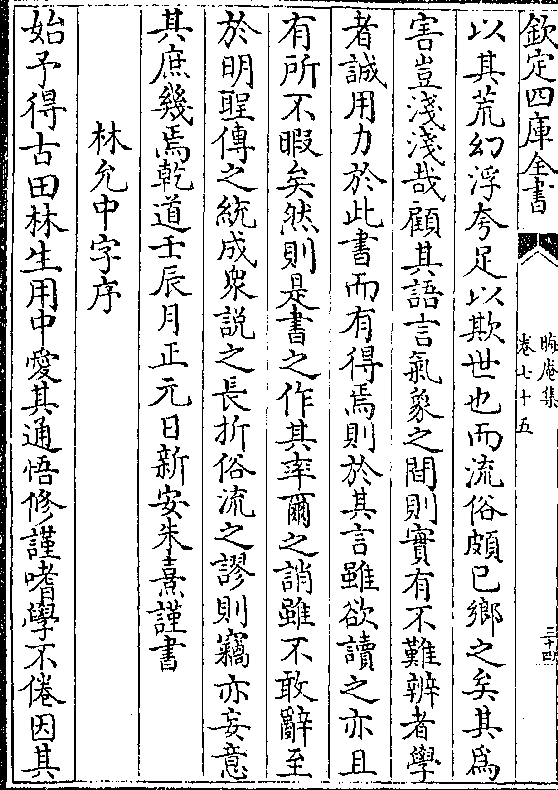 欽定四庫全書
晦庵集
卷七十五
三十四
以其荒幻浮夸足以欺世也而流俗頗已鄉之矣其爲
害豈淺淺哉顧其語言氣象之間則實有不難辨者學
者誠用力於此書而有得焉則於其言雖欲讀之亦且
有所不暇矣然則是書之作其率爾之誚雖不敢辭至
於明聖傳之統成衆説之長折俗流之謬則竊亦妄意
其庶幾焉乾道壬辰月正元日新安朱熹謹書
林允中字序
始予得古田林生用中愛其通悟修謹嗜學不倦因其